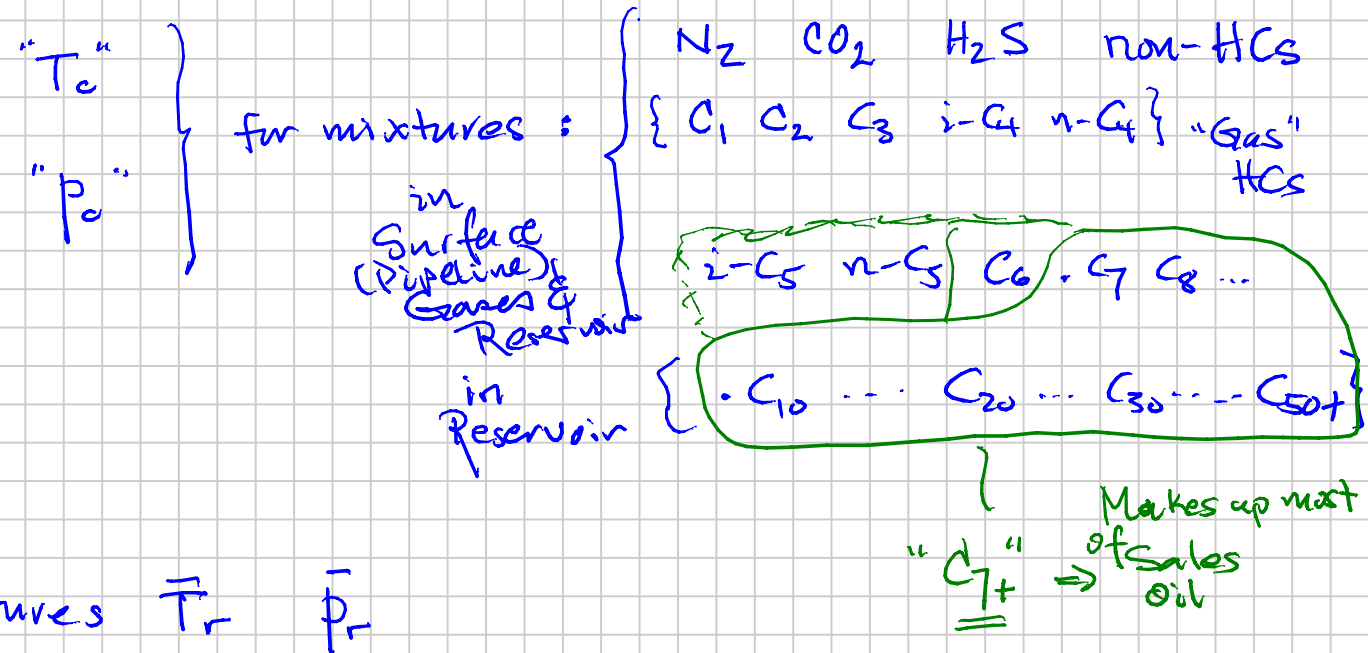 "Tc"
"pc"
for mixtures :
in
Surface
(Pipeline)
Gases &
Reservoir
N2 CO2 H2S non-HCs
{ C1 C2 C3 i-C4 n-C4 } "Gas"
HCs
i-C5 n-C5 C6 . C7 C8 ...
in
Reservoir
{ . C10 ... . C20 ... C30 .... C50+ }
"C7+" ⇒ Makes up most
of Sales
Oil
ures T̄r p̄r